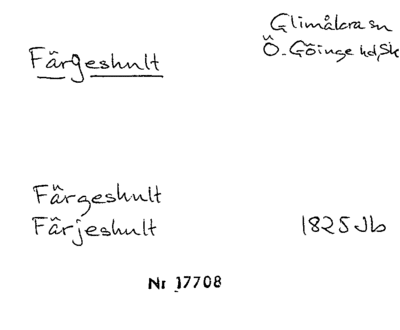 Glimåkra sn
Färgeshult
Ö. Göinge hd, Sk
Färgeshult
Färjeshult 1825 Jb
Nr 17708